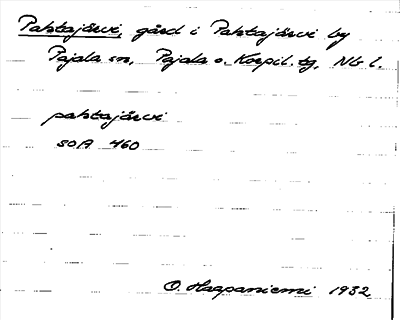 Pahtajärvi, gård i Pahtajärvi by
Pajala sn, Pajala o. Korpil. tg, Nb l.
pahtajärvi
SOA 460
O. Haapaniemi 1932